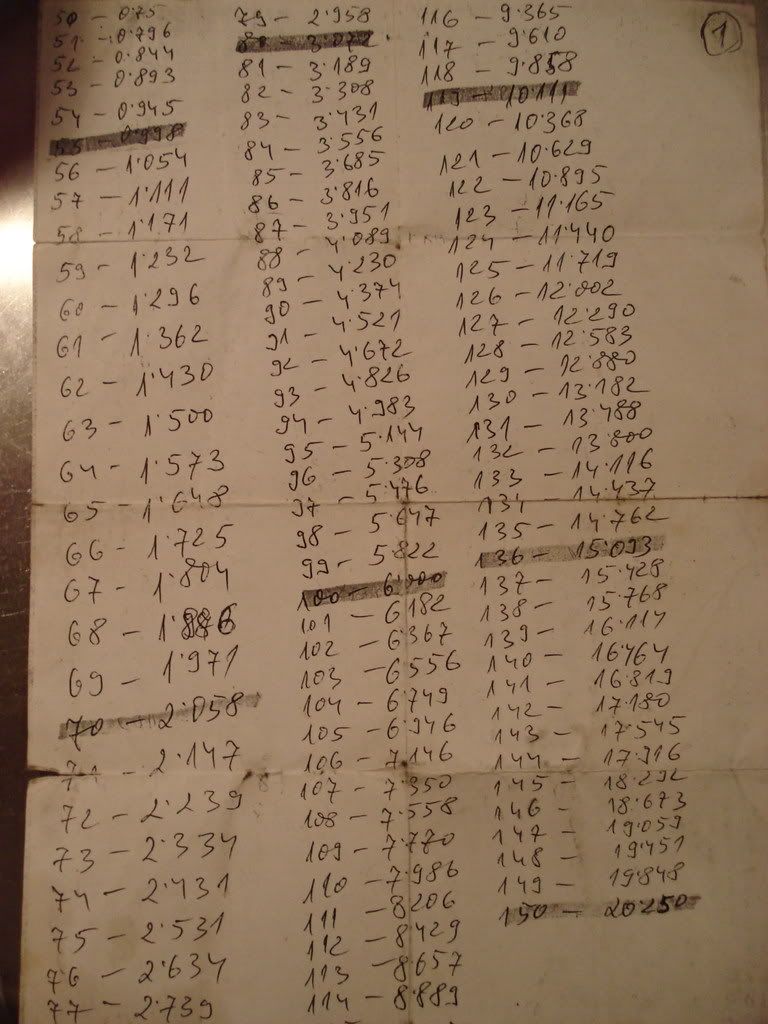 50 - 0'75
51 - 0'796
52 - 0'844
53 - 0'893
54 - 0'945
55 - 0'998
56 - 1'054
57 - 1'111
58 - 1'171
59 - 1'232
60 - 1'296
61 - 1'362
62 - 1'430
63 - 1'500
64 - 1'573
65 - 1'648
66 - 1'725
67 - 1'804
68 - 1'886
69 - 1'971
70 - 2'058
71 - 2'147
72 - 2'239
73 - 2'334
74 - 2'431
75 - 2'531
76 - 2'634
77 - 2'739
79 - 2'958
80 - 3'072
81 - 3'189
82 - 3'308
83 - 3'431
84 - 3'556
85 - 3'685
86 - 3'816
87 - 3'951
88 - 4'089
89 - 4'230
90 - 4'374
91 - 4'521
92 - 4'672
93 - 4'826
94 - 4'983
95 - 5'144
96 - 5'308
97 - 5'476
98 - 5'647
99 - 5'822
100 - 6'000
101 - 6'182
102 - 6'367
103 - 6'556
104 - 6'749
105 - 6'946
106 - 7'146
107 - 7'350
108 - 7'558
109 - 7'770
110 - 7'986
111 - 8'206
112 - 8'429
113 - 8'657
114 - 8'889
116 - 9'365
117 - 9'610
118 - 9'858
119 - 10'111
120 - 10'368
121 - 10'629
122 - 10'895
123 - 11'165
124 - 11'440
125 - 11'719
126 - 12'002
127 - 12'290
128 - 12'583
129 - 12'880
130 - 13'182
131 - 13'488
132 - 13'800
133 - 14'116
134 - 14'437
135 - 14'762
136 - 15'093
137 - 15'428
138 - 15'768
139 - 16'114
140 - 16'464
141 - 16'819
142 - 17'180
143 - 17'545
144 - 17'916
145 - 18'292
146 - 18'673
147 - 19'059
148 - 19'451
149 - 19'848
150 - 20'250
1